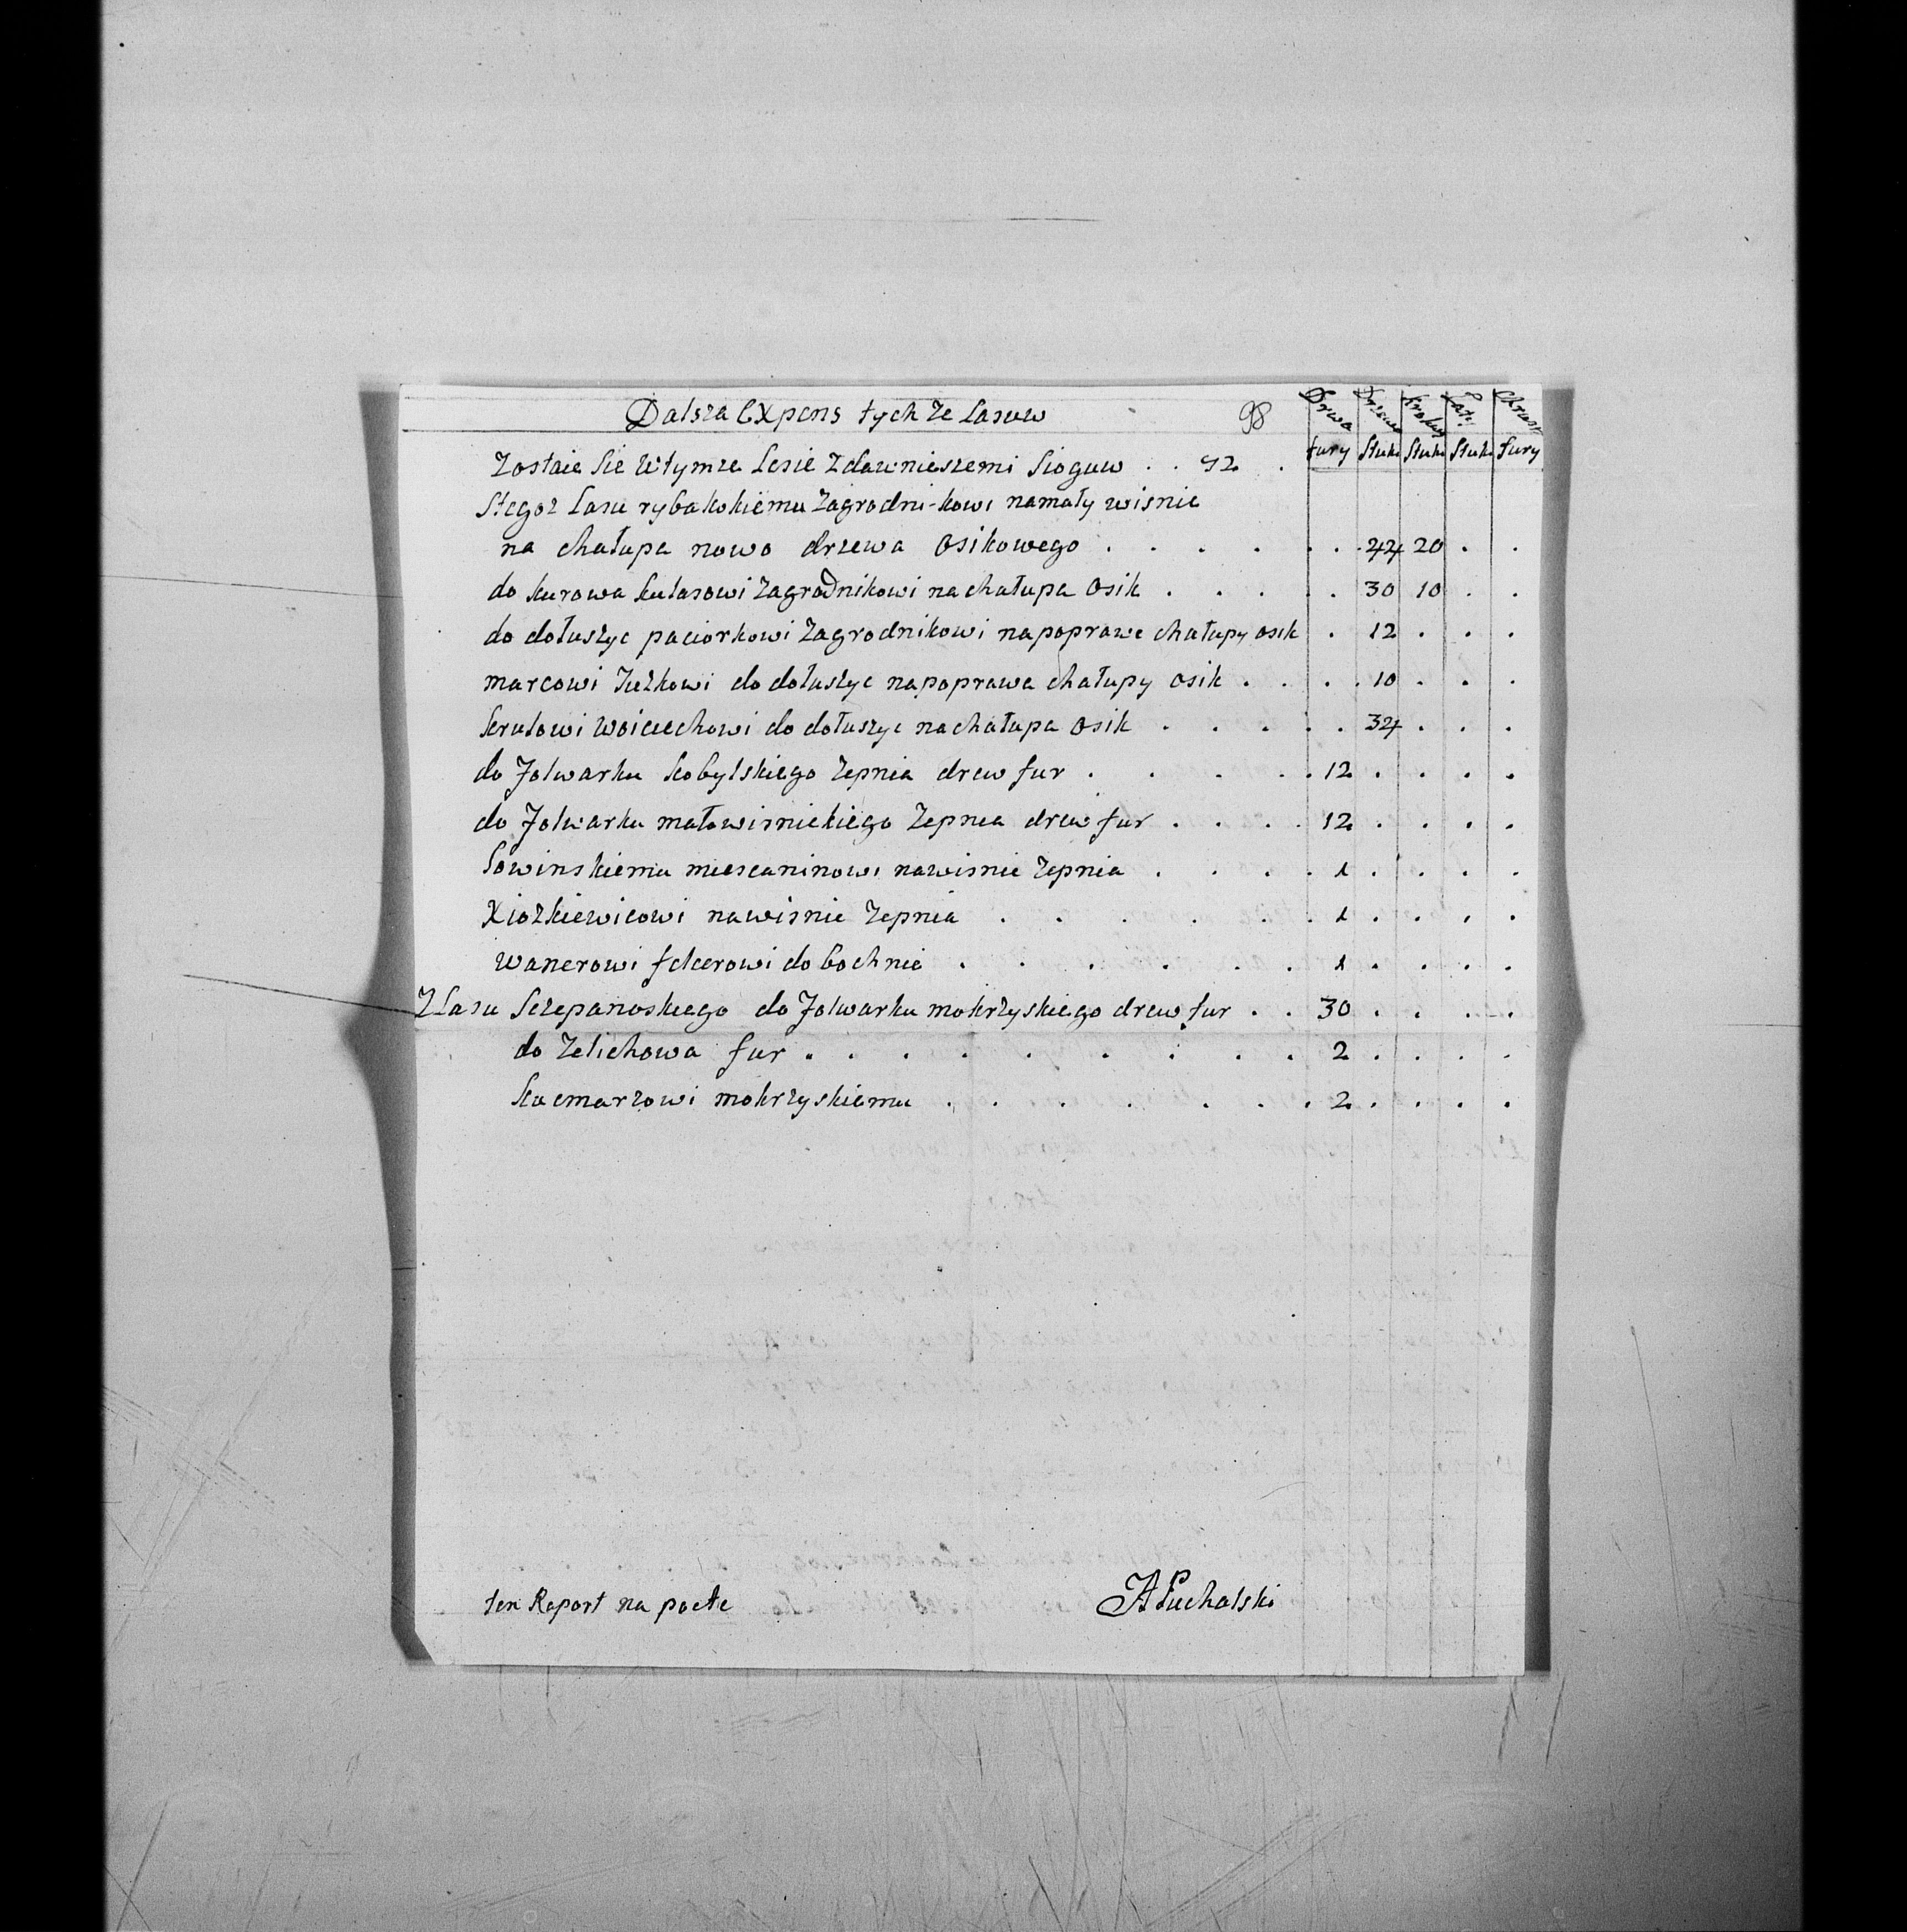 Dalsza Expens tych ze Lasow 98 Drwa Drzewa Krokwy Łat. Chrust
Zostaie Sie Wtymze Lesie Zdawnieszemi Sioguw . . 92 . fury Stuk Stuk Stuk fury
Stegoz Lasu rybakokiemu Zagrodni-kowi namały wisnie
na chałupa nowo drzewa Osikowego . . . . . . 44 20 . .
do kurowa kulasowi Zagrodnikowi nachałupa Osik . . . . . 30 10 . .
do dołuszyc paciorkowi Zagrodnikowi napoprawe chałupy osik . 12 . . .
marcowi Juzkowi do dołuszyc napoprawa chałupy osik . . . . 10 . . .
Woiciechowi do dołuszyc nachałupa Osik . . . . . 34 . . .
do Folwarku kobylskiego Zepnia drew fur . . . . . . 12 . . . .
do Folwarku małowisnickiego Zepnea drew fur . . . . 12 . . . .
Sowinskiemu miescaninowi nawisnie Zepnia . . . . . 1 . . . .
Xiozkiewicowi nawisnie Zepnia . . . . . . . 1 . . . .
Wanerowi felcerowi do bochnie . . . . . . 1 . . . .
Z Lasu Sczepanoskiego do Folwarku mokrzyskiego drew fur . . 30 . . . .
do Zelichowa fur . . . . . . . . . 2 . . . .
kacmarzowi mokrzyskiemu . . . . . . . 2 . . . .
ten Raport na pocte APuchalski